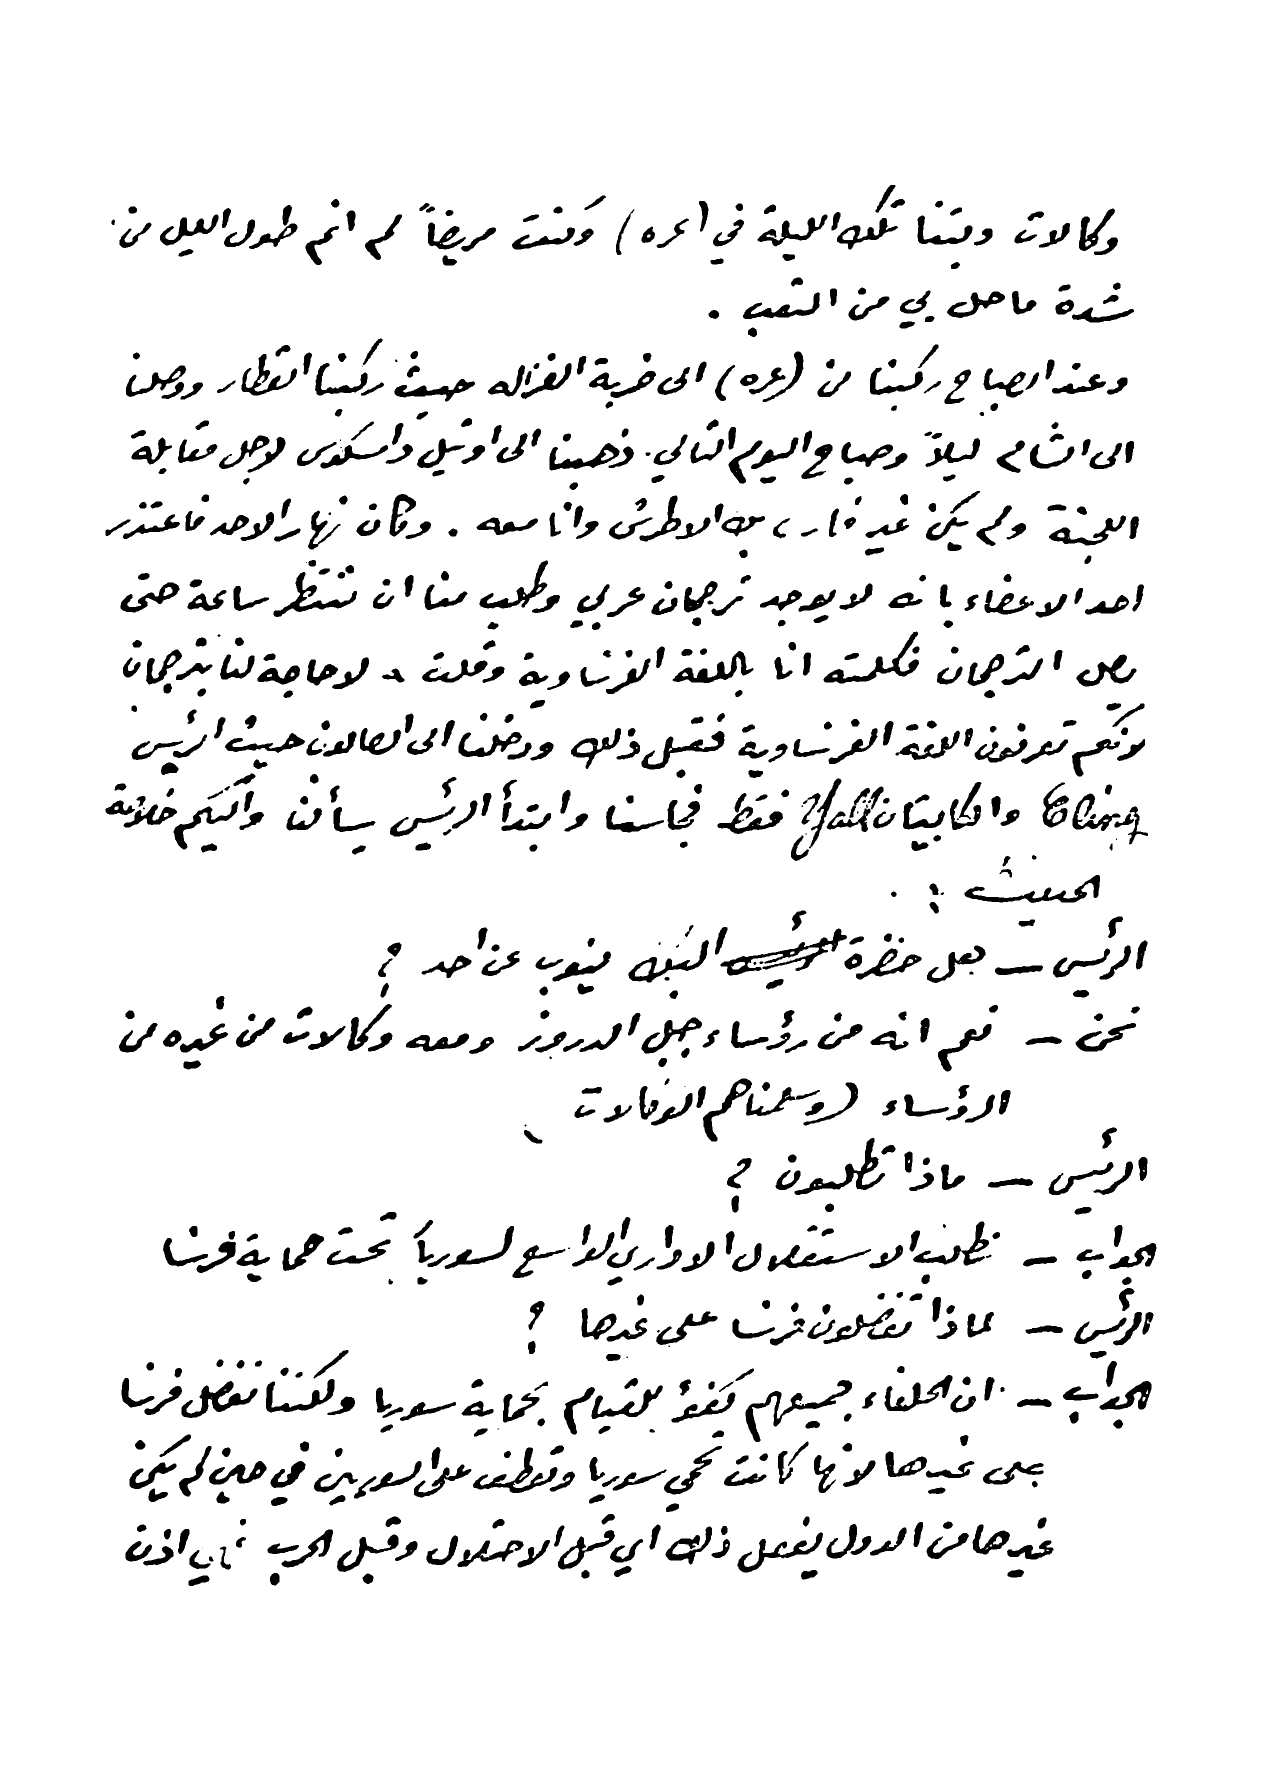 وكالات وبتنا تلك الليلة في (عره) وكنت مريضاً لم انم طول الليل من
شدة ما حل بي من التعب .
وعند الصباح ركبنا من (عره) الى خربة الغزاله حيث ركبنا القطار ووصلنا
الى الشام ليلاً وصباح اليوم التالي ذهبنا الى اوتيل داماسكوس لاجل مقابلة
اللجنة ولم يكن غير فارس بك الاطرش وانا معه . وكان نهار الاحد فاعتذر
احد الاعضاء بانه لا يوجد ترجمان عربي وطلب منا ان ننتظر ساعة حتى
يصل الترجمان فكلمته انا باللغة الفرنساوية وقلت لا حاجة لنا بترجمان
لانكم تعرفون اللغة الفرنساوية فقبل ذلك ودخلنا الى الصالون حيث الرئيس
والكابتان Yall فقط فجلسنا وابتدأ الرئيس يسألنا واليكم خلاصة
الحديث :
الرئيس – هل حضرة البك ينوب عن احد ؟
نحن – نعم انه من رؤساء جبل الدروز ومعه وكالات من غيره من
الرؤساء (وسلمناهم الوكالات)
الرئيس – ماذا تطلبون ؟
الجواب – نطلب الاستقلال الاداري الواسع لسوريا تحت حماية فرنسا
الرئيس – لماذا تفضلون فرنسا على غيرها ؟
الجواب – ان الحلفاء جميعهم كفؤ للقيام بحماية سوريا ولكننا نفضل فرنسا
على غيرها لانها كانت تحمي سوريا وتعطف على السوريين في حين لم يكن
غيرها من الدول يفعل ذلك اي قبل الاحتلال وقبل الحرب اذن